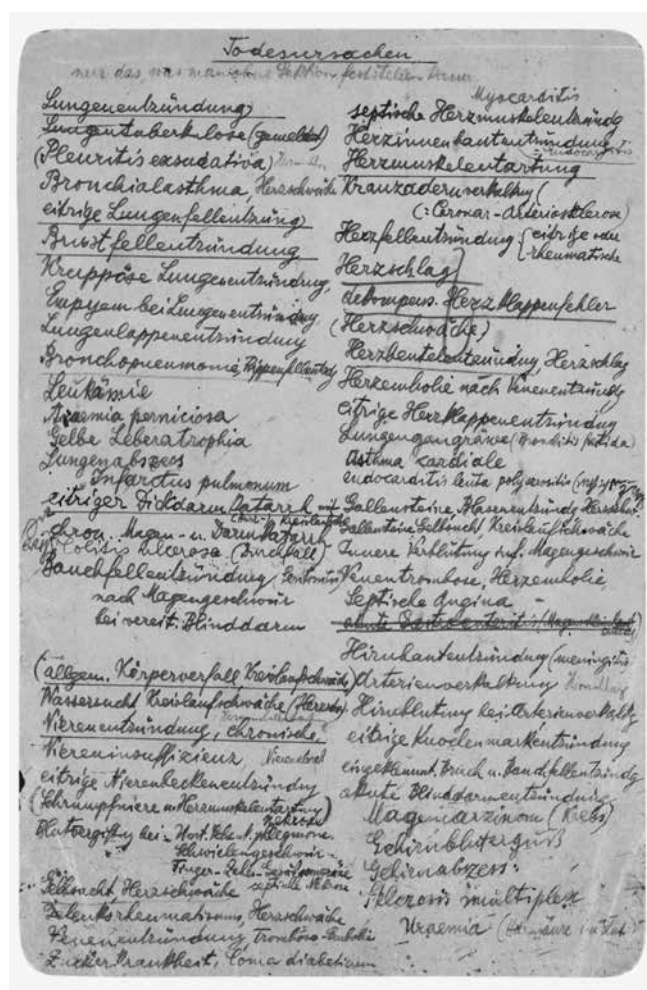 Todesursachen
nur das, was man ohne Sektion feststellen kann
Lungenentzündung
Lungentuberkulose (gemeldet)
(Pleuritis exsudativa)
Bronchialasthma, Herzschwäche
eitrige Lungenfellentzüng)
Brustfellentzündung
Kruppöse Lungenentzündung,
Empyem bei Lungenentzündung
Lungenlappenentzündung
Bronchopneumonie, Rippenfellentzdg
Leukämie
Anaemia perniciosa
Gelbe Leberatrophia
Lungenabszess
Infarctus pulmonum
eitriger Dickdarm Catarrh mit
chron. Magen- u. Darm Katarrh
Colitis ulcerosa (Durchfall)
Bauchfellentzündung
nach Magengeschwür
bei vereit. Blinddarm
(allgem. Körperverfall, Kreislaufschwäche)
Wassersucht Kreislaufschwäche (Herzschw.)
Nierenentzündung, chronische.
Niereninsuffizienz
eitrige Nierenbeckenentzündung
(Schrumpfniere m. Herzmuskelentartung)
Blutvergiftung bei:
Phlegmone
Nekrose
Schwielengeschwür-
Finger-
septische
Herzschwäche
Gelenksrheumatismus Herzschwäche
Venenentzündung, Trombose-Embolie
Zuckerkrankheit, Coma diabeticum
Myocarditis
septische Herzmuskelentzündg
Herzinnenhautentzündung
Endocarditis
Herzmuskelentartung
Kranzadernverkalkung (
(: Coronar-Arteriosklerose)
Herzfellentzündung { eitrige oder
rheumatische
Herzschlag
dekompens. Herzklappenfehler
(Herzschwäche)
Herzbeutelentzündung, Herzschlag
Herzembolie nach Venenentzündg
eitrige Herzklappenentzündung
Lungengangräne
Asthma cardiale
endocarditis lenta
Gallensteine Blasenentzündg Herzschw.
Gallensteine Gelbsucht, Kreislaufschwäche
Innere Verblutung inf. Magengeschwür
Venentrombose, Herzembolie,
Septische Angina -
Hirnhautentzündung (meningitis)
Arterienverkalkung
Hirnblutung bei Arterienverkalkg
eitrige Knochenmarkentzündung
eingeklemmt. Bruch u. Bauchfellentzündg
akute Blinddarmentzündung
Magenkarzinom (Krebs)
Gehirnbluterguß
Gehirnabszess:
Sklerosis multiplex
Uraemia